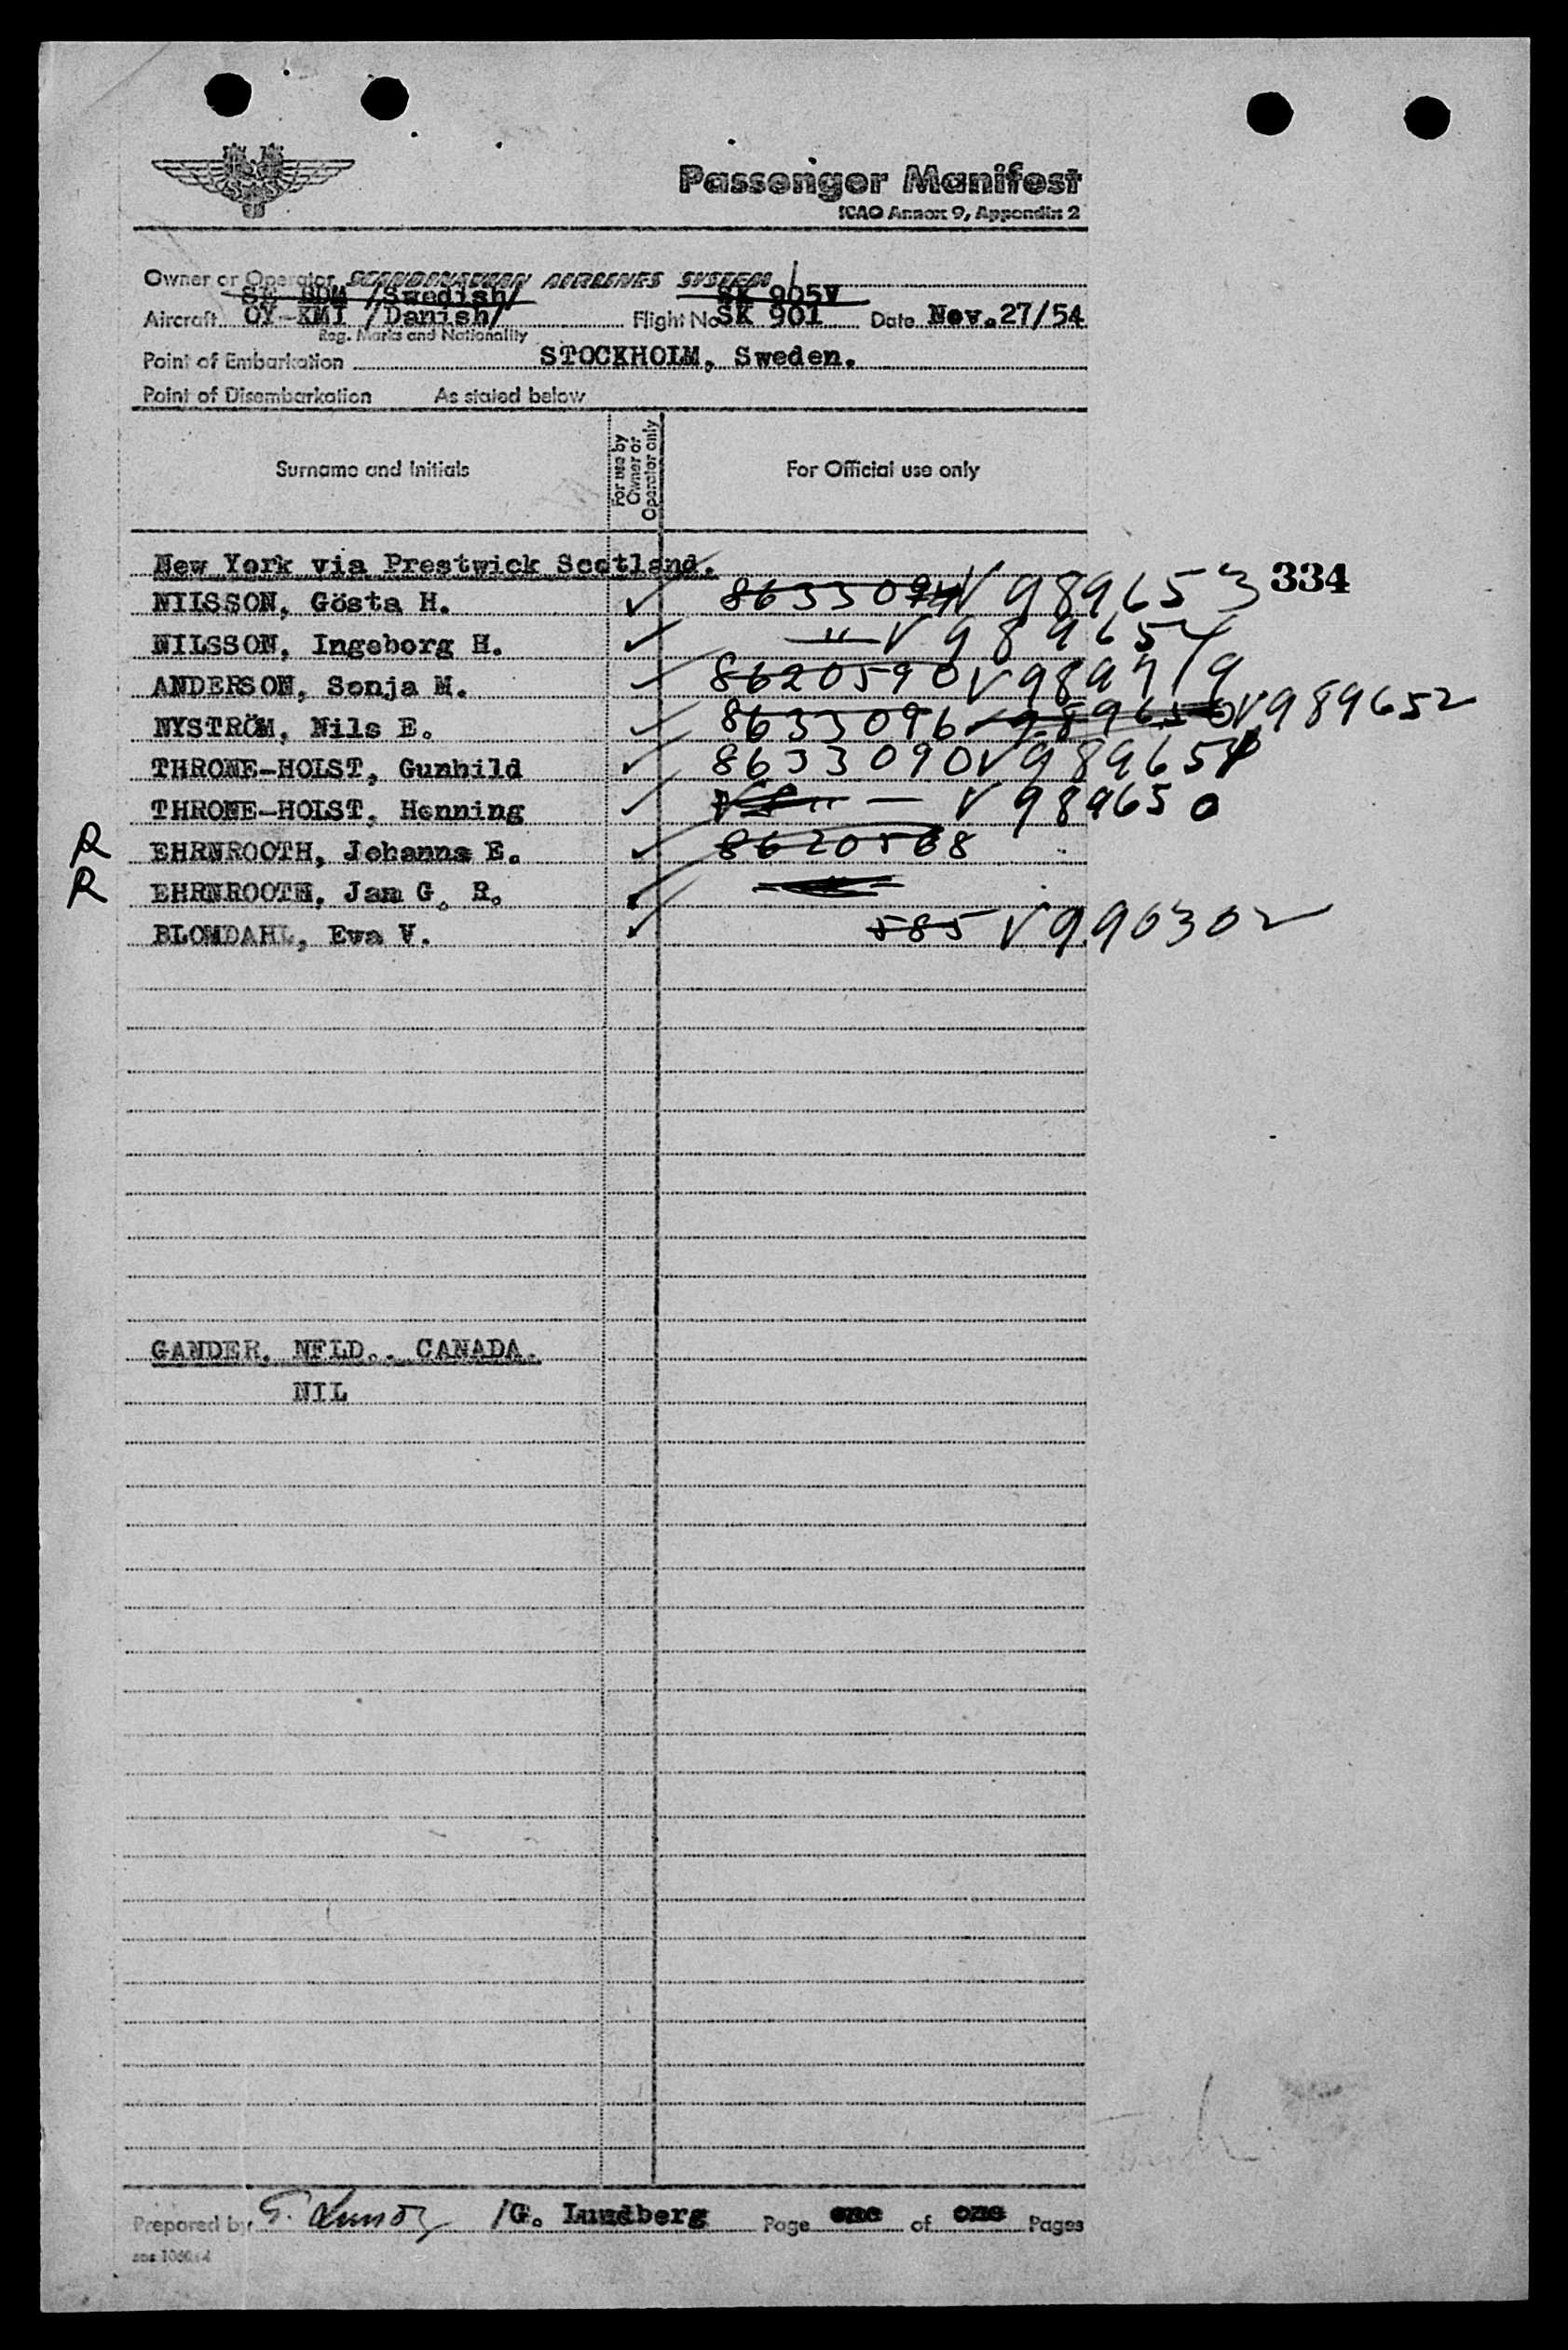 Passenger Manifest
ICAO Annex 9, Appendix 2
Owner or Operator SCANDINAVIAN AIRLINES SYSTEM
SE BDM /Swedish/ SK 905V
Aircraft OY-KMI /Danish/ Flight No SK 901 Date Nov.27/54
Reg. Marks and Nationality
Point of Embarkation STOCKHOLM, Sweden.
Point of Disembarkation As stated below
Surname and Initials
For use by Owner or Operator only
For Official use only
New York via Prestwick Scotland.
334
NILSSON, Gösta H. ✓ 8633094 V989653
NILSSON, Ingeborg H. ✓ — " — V989654
ANDERSON, Sonja M. ✓ 8620590 V989719
NYSTRÖM, Nils E. ✓ 8633096 989650 V989652
THRONE-HOLST, Gunhild ✓ 8633090 V98965
THRONE-HOLST, Henning ✓ " — V989650
R EHRNROOTH, Johanna E. ✓ 8620568
R EHRNROOTH, Jam G. R. ✓ "
BLOMDAHL, Eva V. ✓ 585 V990302
GANDER, NFLD., CANADA.
NIL
Prepared by /G. Lundberg Page one of one Pages